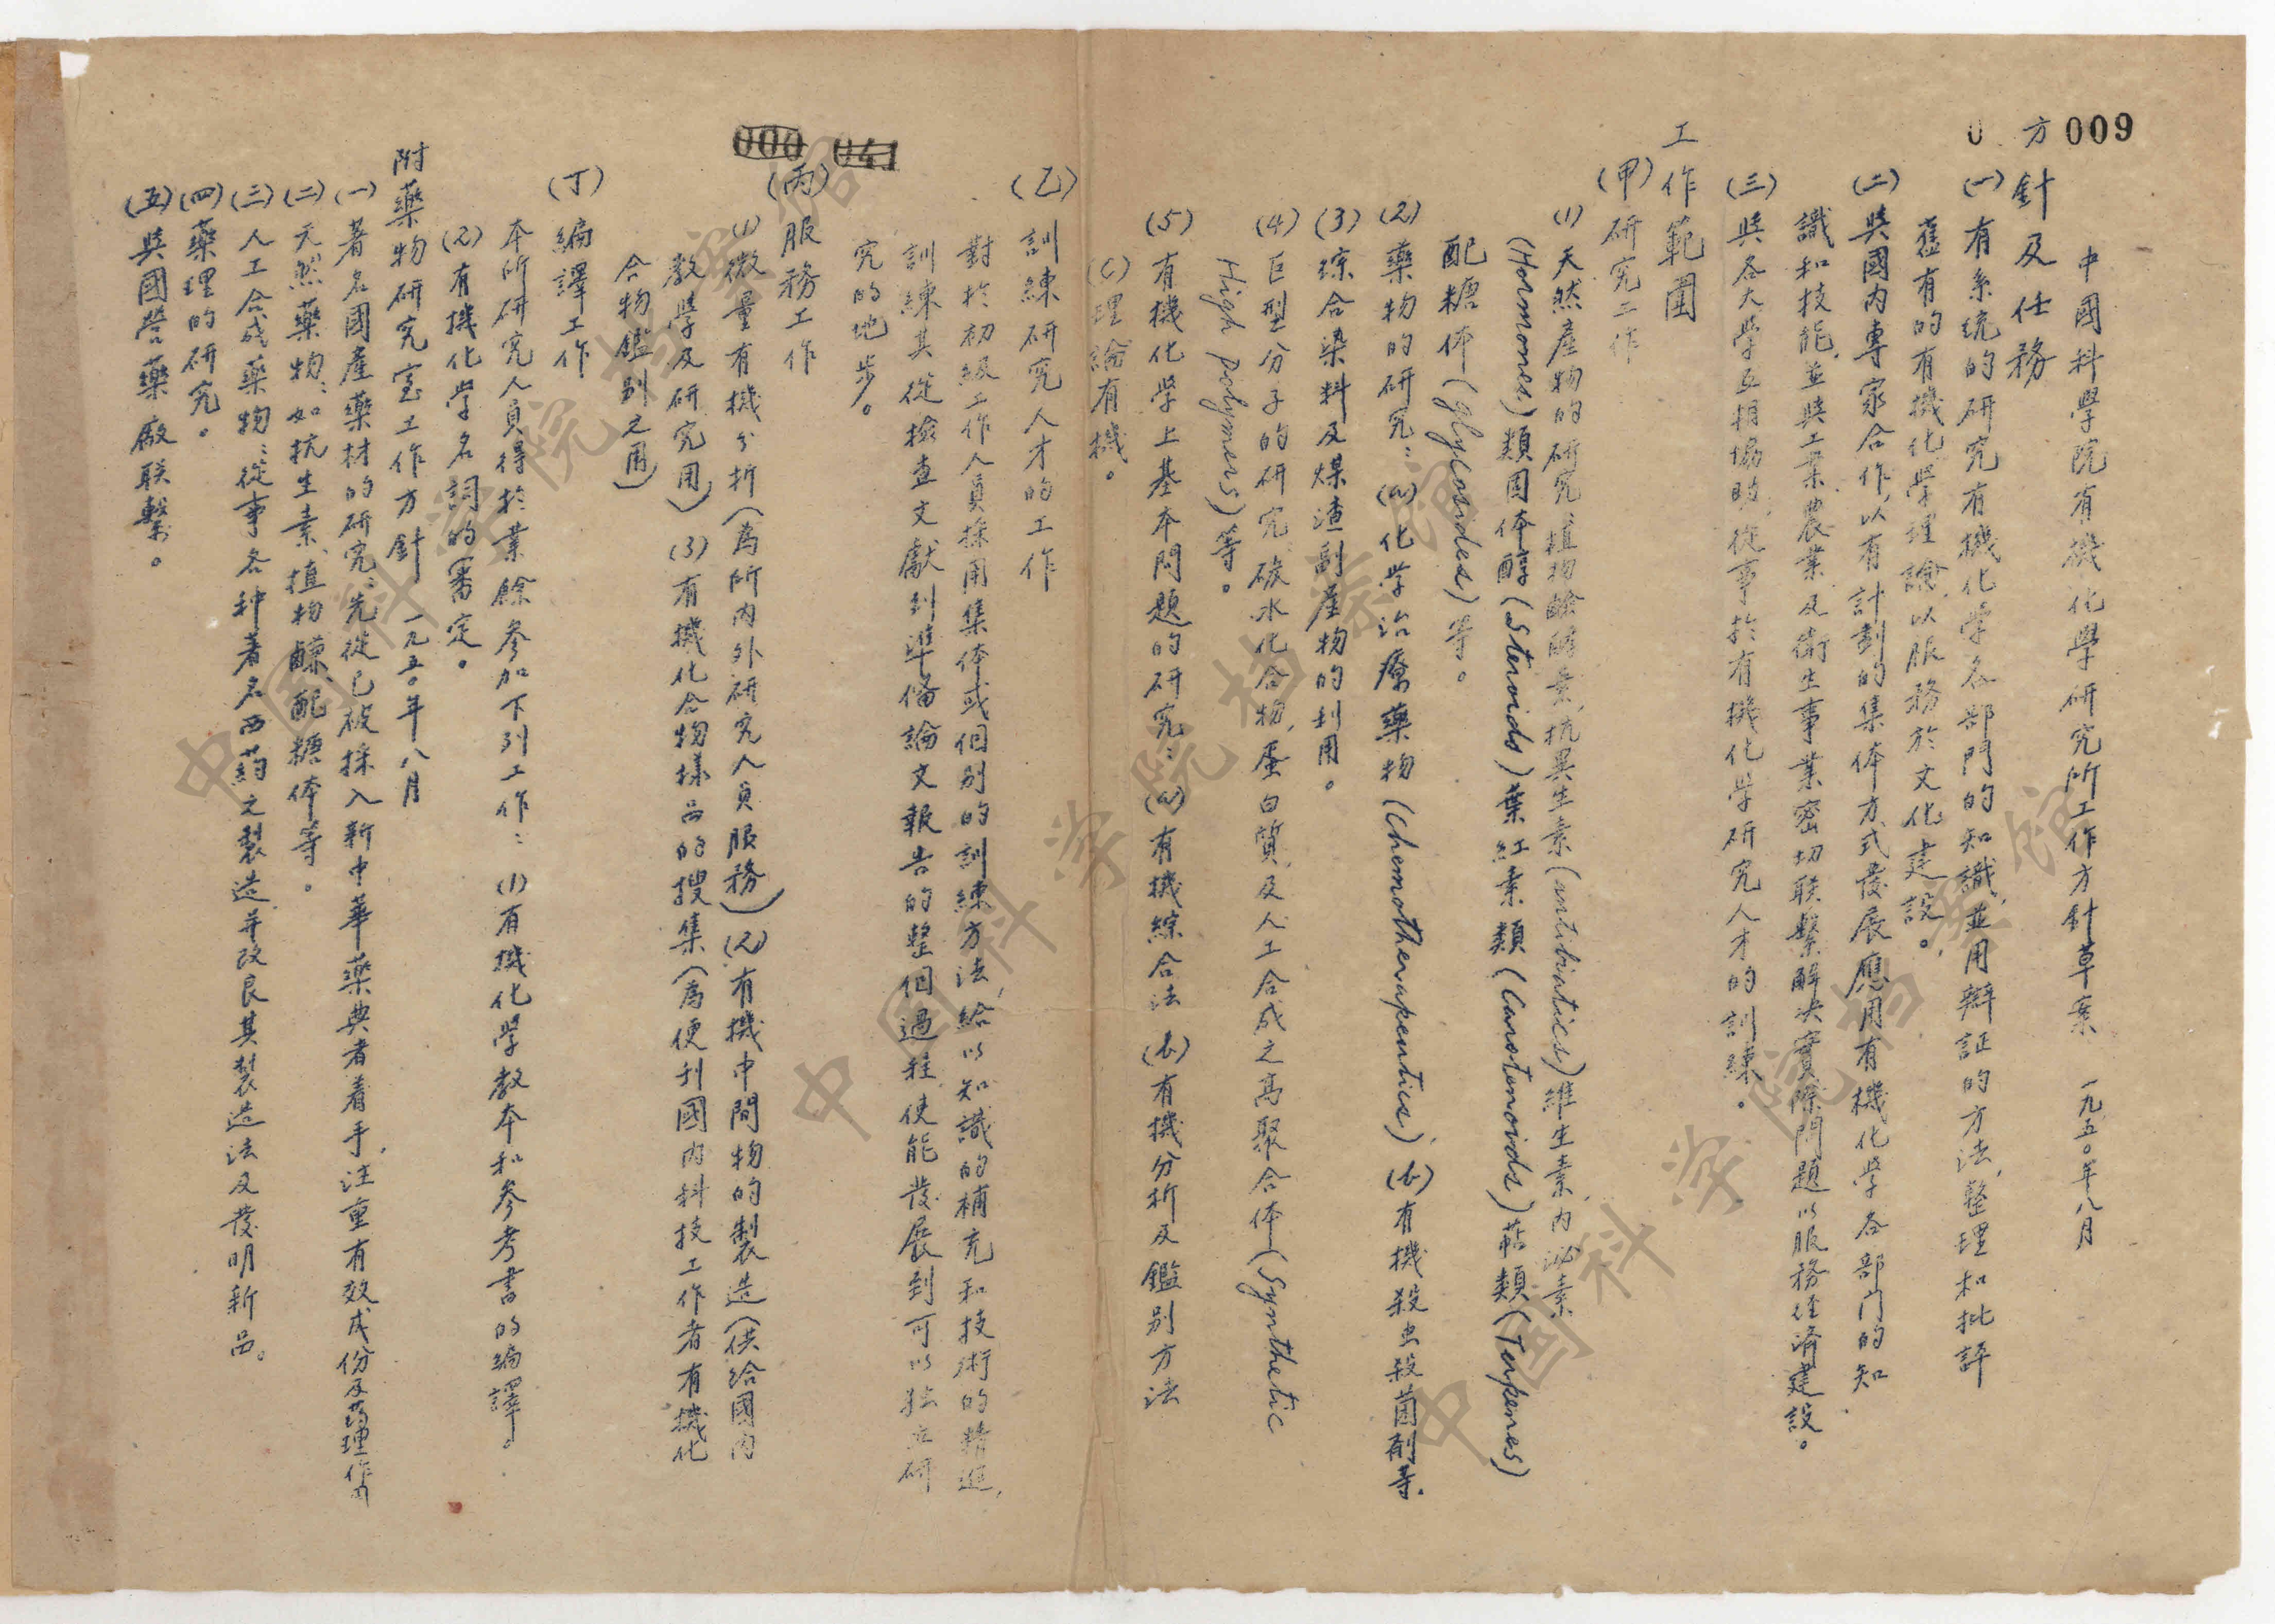 009
中國科學院有機化學研究所工作方針草案 一九五〇年八月
方針及任務
(一)有系統的研究有機化學各部門的知識,並用辯証的方法,整理和批評
舊有的有機化學理論,以服務於文化建設。
(二)與國內專家合作,以有計劃的集体方式發展應用有機化學各部门的知
識和技能,並與工業、農業及衛生事業密切联繫解决實際問題以服務经济建設。
(三)與各大学互相協助,從事於有機化学研究人才的訓練。
工作範圍
(甲)研究工作
(1)天然產物的研究:植物鹼,酵素,抗異生素(antibiotics)維生素,内泌素
(Hormones)類固体醇(Steroids)葉紅素類(Carotenoids)萜類(Terpenes)
配糖体(glycosides)等。
(2)藥物的研究:(a)化学治療藥物(Chemotherapeutics),(b)有機殺虫殺菌剤等.
(3)綜合染料及煤渣副產物的利用。
(4)巨型分子的研究,碳水化合物,蛋白質,及人工合成之高聚合体(Synthetic
High polymers)等。
(5)有機化學上基本問題的研究:(a)有機綜合法 (b)有機分析及鑑别方法
(C)理論有機。
(乙)訓練研究人才的工作
對於初級工作人員採用集体或個别的訓練方法,給以知識的補充和技術的精進,
訓練其從撿查文獻到準備論文報告的整個過程使能發展到可以独立研
究的地步。
000 041
(丙)服務工作
(1)微量有機分折(為所内外研究人員服務)(2)有機中間物的製造(供给國内
教學及研究用)(3)有機化合物樣品的搜集(為便利國内科技工作者有機化
合物鑑别之用)
(丁)編譯工作
本所研究人員得於業餘參加下列工作:(1)有機化學教本和參考書的編譯。
(2)有機化学名詞的審定。
附藥物研究室工作方針 一九五〇年八月
(一)著名國產藥材的研究:先從已被採入新中華藥典者着手,注重有效成份及药理作用
(二)天然藥物:如抗生素、植物鹼、配糖体等。
(三)人工合成藥物:從事各种著名西药之製造,并改良其製造法及發明新品。
(四)藥理的研究。
(五)與國營藥廠联繫。
中国科学院档案馆
中国科学院档案馆
中国科学院档案馆